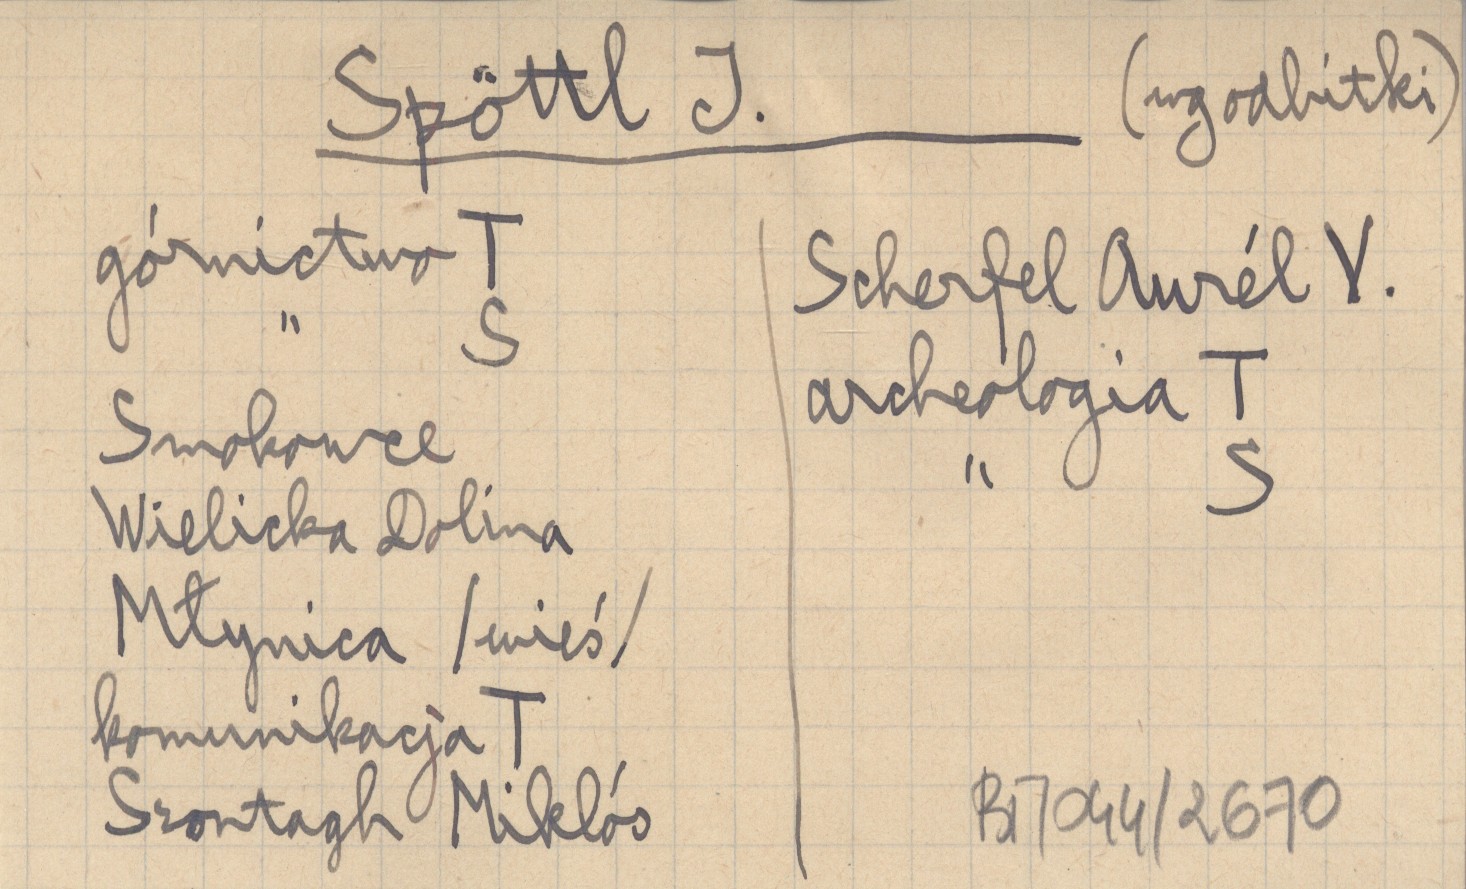 Spöttl J. (wg odbitki)
górnictwo T
" S
Smokowce
Wielicka Dolina
Młynica /wieś/
komunikacja T
Szontagh Miklós
Scherfel Aurél V.
archeologia T
" S
044/2670